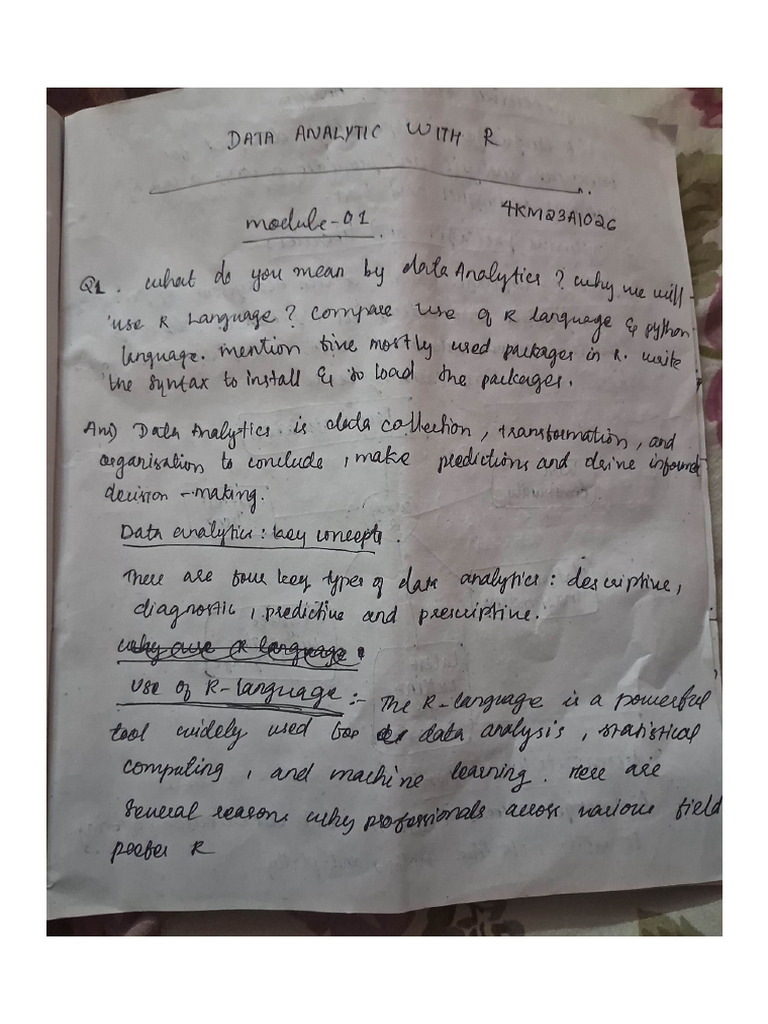 DATA ANALYTIC WITH R
module-01
4KM23AI026
Q1. what do you mean by data Analytics? why we will
use R Language? Compare use of R language & python
language. mention five mostly used packages in R. write
the syntax to install & to load the packages.
Ans) Data Analytics is data collection, transformation, and
organisation to conclude, make predictions and drive informed
decision-making.
Data analytics: key concept.
There are four key types of data analytics: descriptive,
diagnostic, predictive and prescriptive.
why use R language:
Use of R-language :- The R-language is a powerful
tool widely used for data analysis, statistical
computing, and machine learning. Here are
several reasons why professionals across various field
prefer R